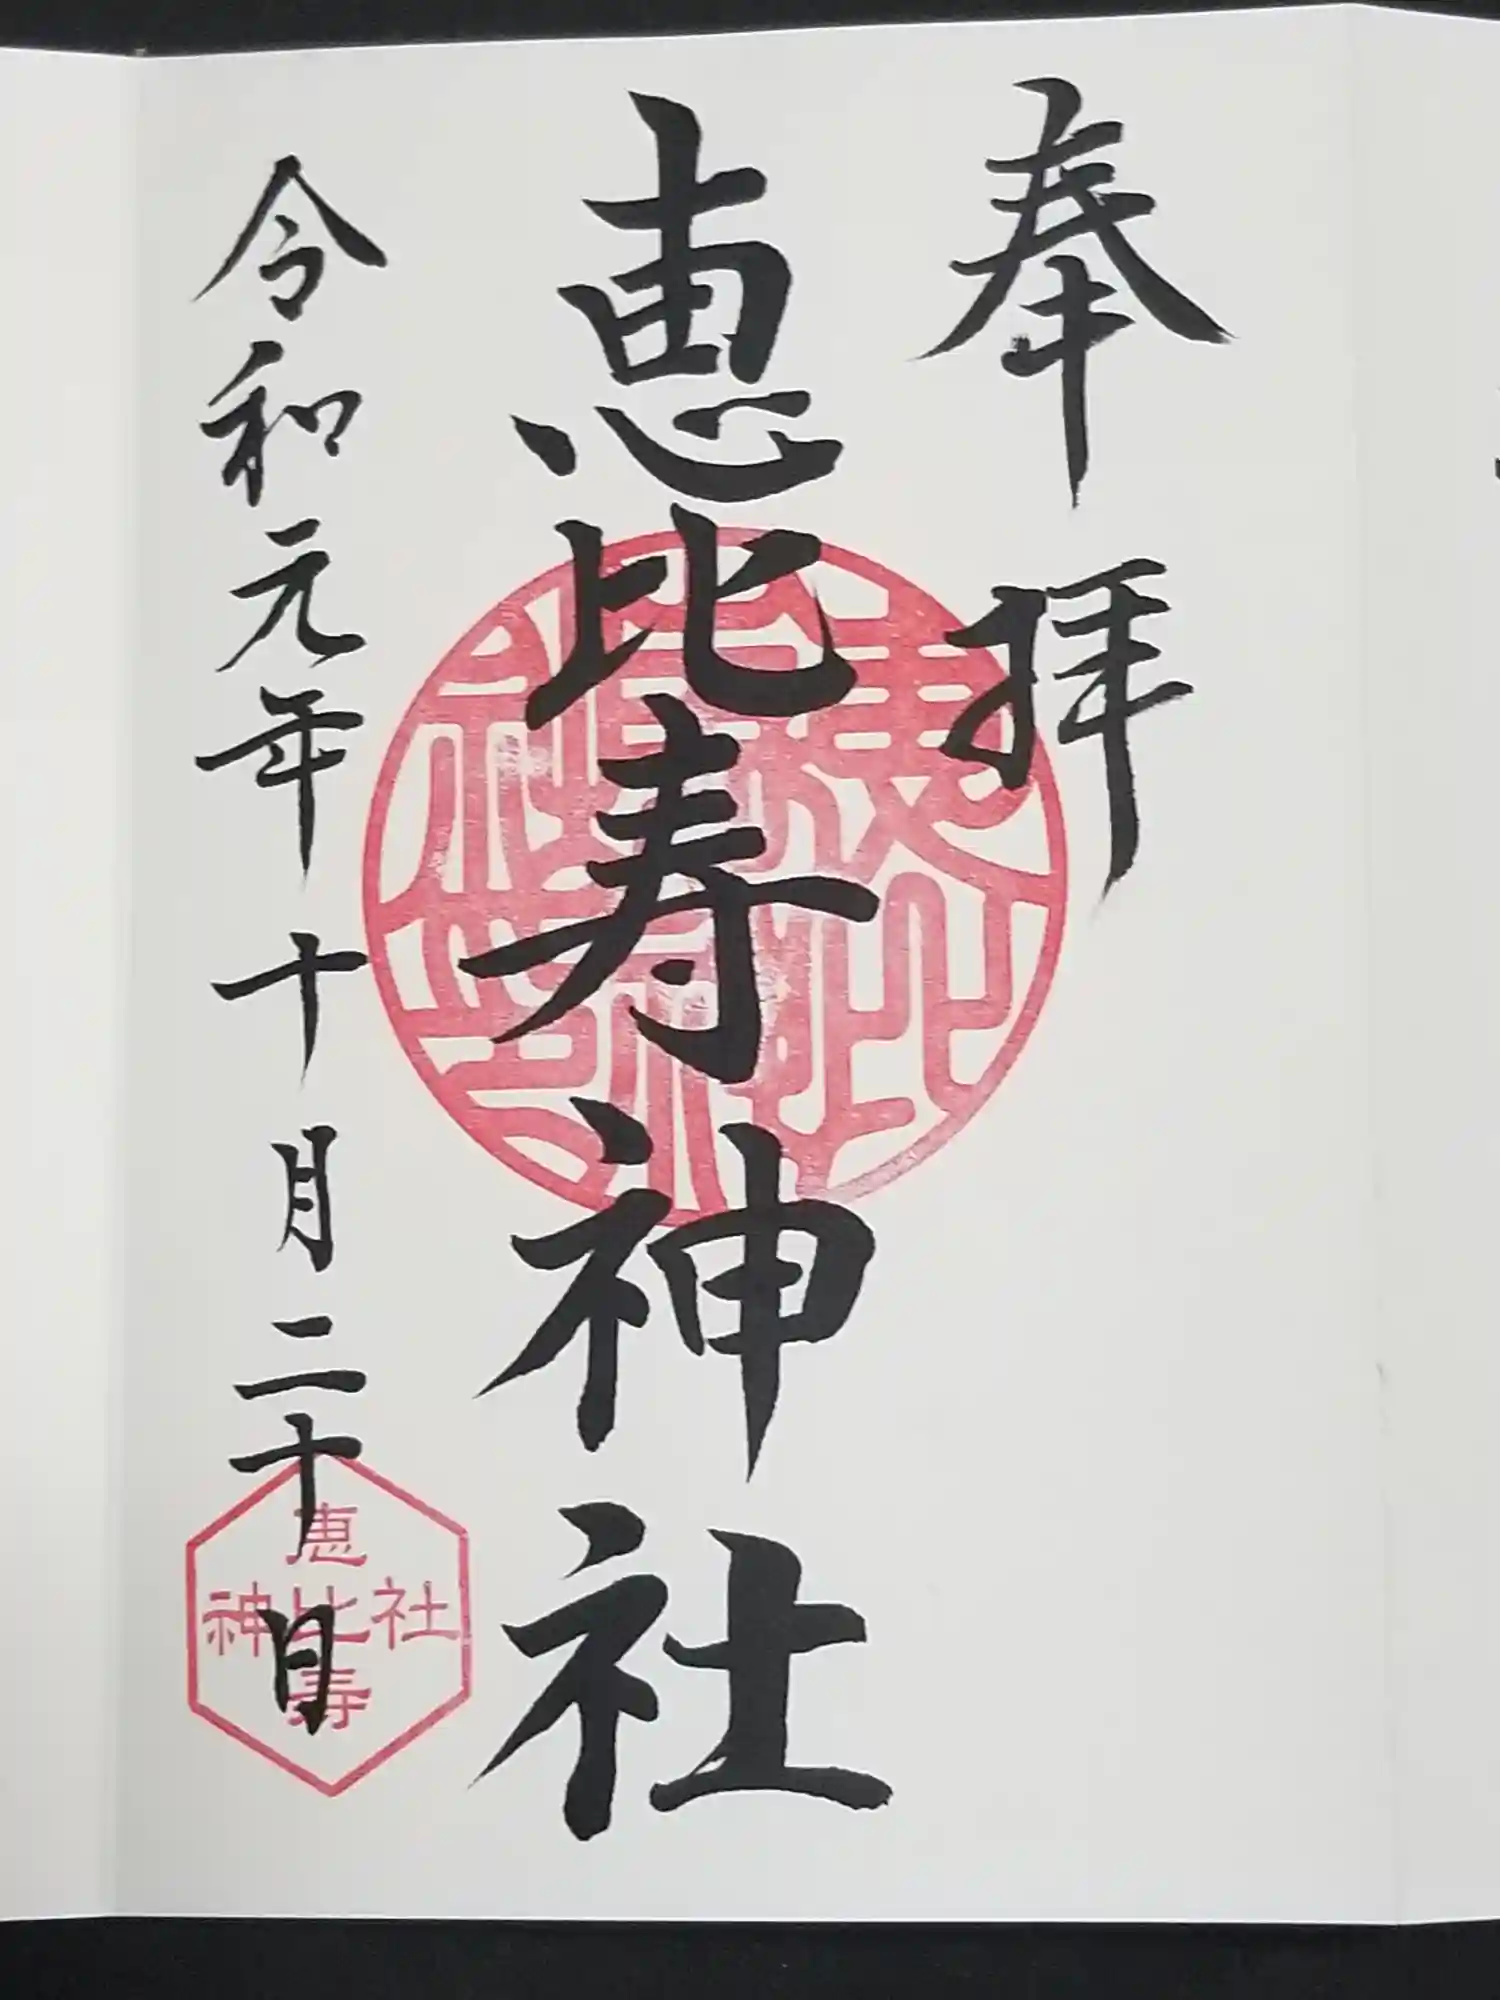 奉拝
恵比寿神社
令和元年十月二十日
恵
神比社
寿